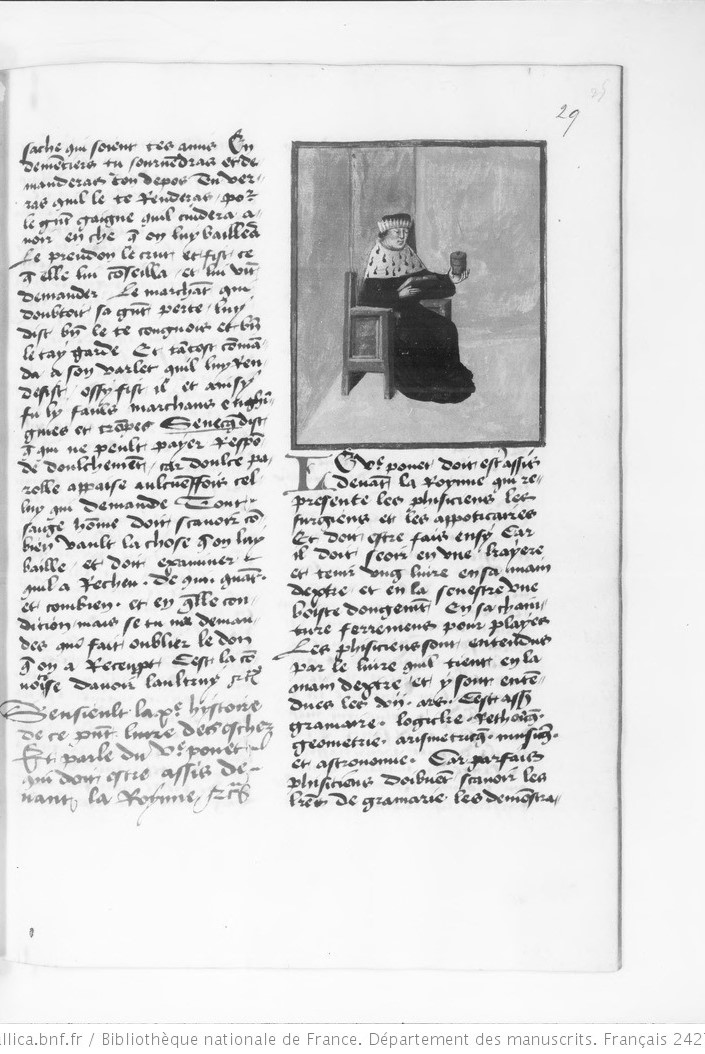 29
sache qui soient tes amis En
demẽtiers tu souruendras et de
manderas ton depos Tu ver
ras quil le te Rendera por
le gñt gaigne quil cuidera a
uoir en che q̃ on luy bailleṛ
Le preudon le crut et fist ce
q̃ elle lui cõseilla et lui vit
demander Le marchãt qui
doubtoit sa gñt perte luy
dist biñ le te congnois et biñ
le tay garde Et tãtost cõmã
da a son varlet quil luy Ren
desist ossy fist il et ainsy
fu ly faulx marchans
et trõpes Senecq̃ dist
q̃ qui ne peult payer Respõ
de doulchement car doulce pa
rolle appaise aulcuneffois cel
luy qui demande Tout
saige hõme doit scauoir cõ
bien vault la chose q̃ on luy
baille et doit examiner
quil a Recheu De qui quãt
et combien et en q̃lle con
dicion mais se tu me deman
des qui fait oublier le don
q̃ on a Receupt Cest la cõ
uoitise dauoir laultruy
Sensieult la xe hystoire
de ce pñt liure des eschez
Et parle du ve ponet
qui doit estre assis de
uant la Royne
LE ve ponet doit estre assis
Deuãt la Royne qui re
presente les phisiciens les
surgiens et les appoticaires
Et doit estre fais ensy Car
il doit seoir en vne kayere
et tenir vng liure en sa main
dextre et en la senestre vne
boiste dongemt En sa chain
ture ferremens pour playes
Les phisiciens sont entendus
par le liure quil tient en la
main dextre et y sont enten
dues les vii ars Cest assr
gramare logicke Rethoricq̃
geometrie arismetricq̃ musicq̃
et astronomie Car parfais
phisiciens doibuent scauoir les
lrẽs de gramarie les demõstra
llica.bnf.fr / Bibliothèque nationale de France. Département des manuscrits. Français 242